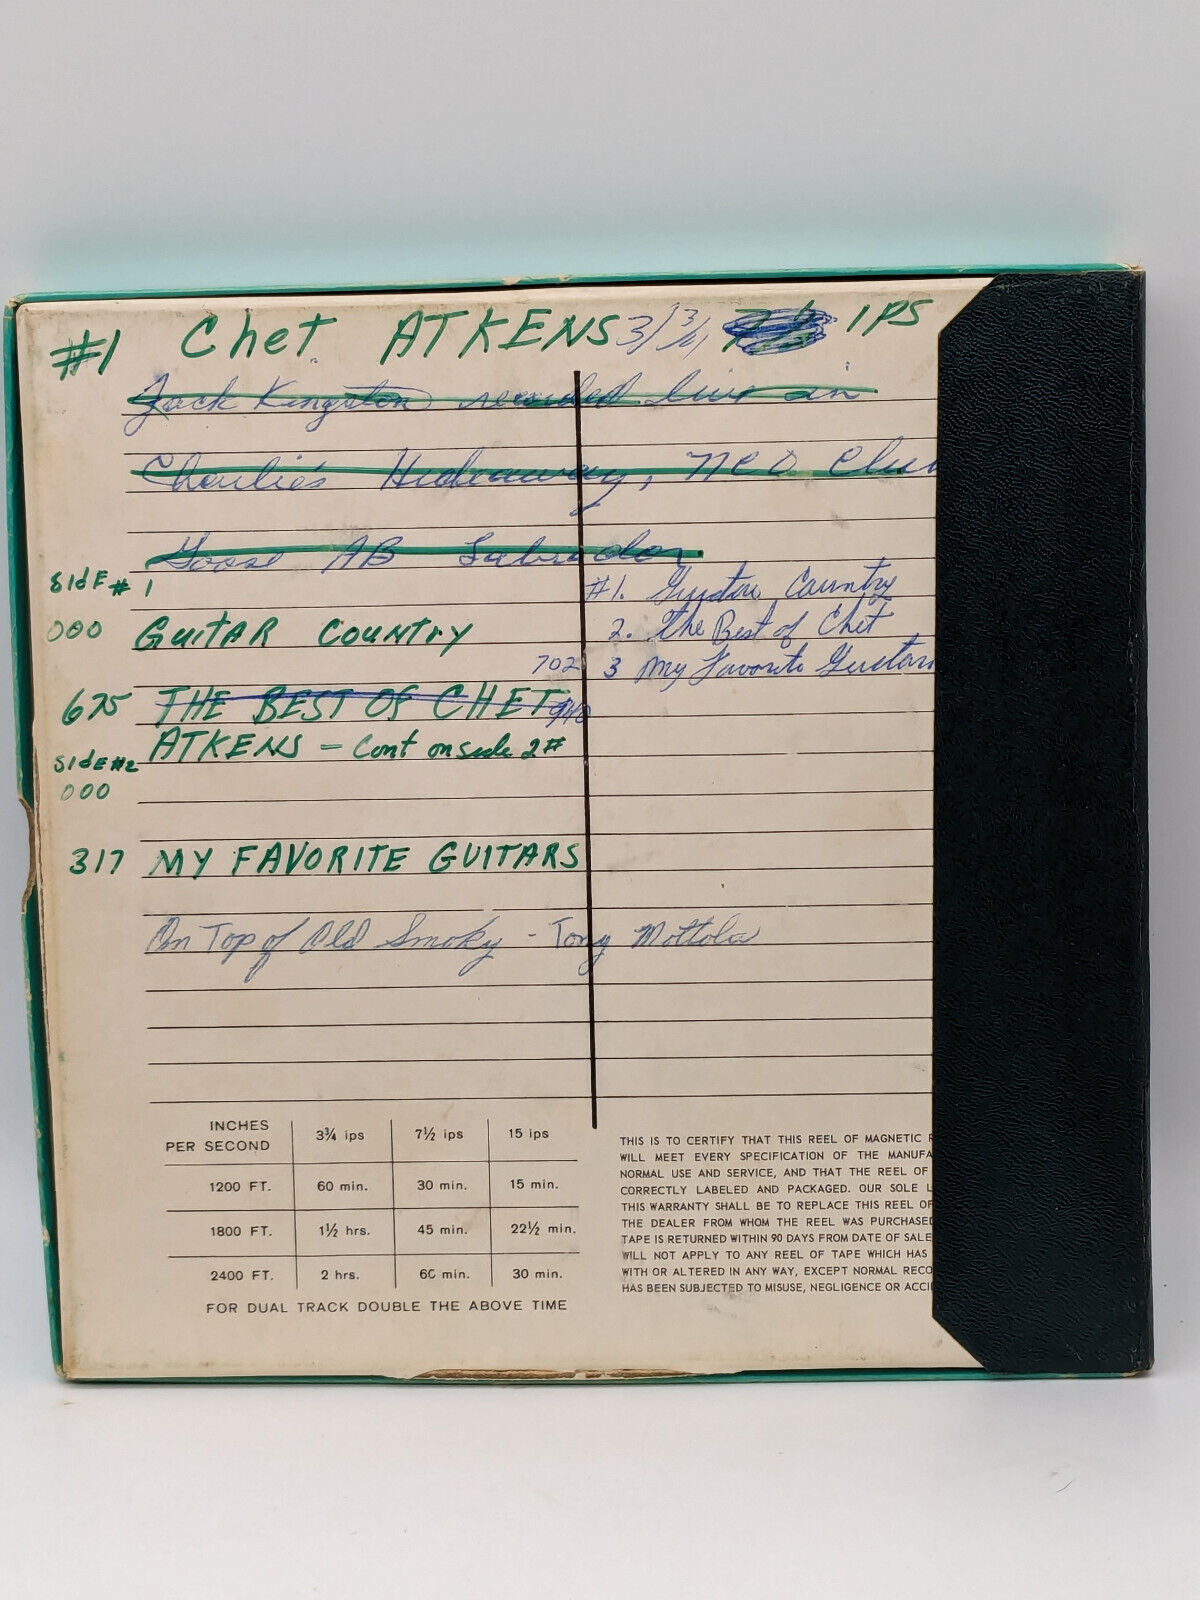 #1 Chet ATKENS 3 3/4 IPS
Jack Kingston recorded live in
Charlie's Hideaway, NCO Club
Goose AB Labrador
SIdE #1
#1. Guitar Country
000 GuitAR COUNTRY
2. The Best of Chet
702
3 My Favorite Guitars
675 THE BEST OF CHET 940
ATKENS - Cont on side 2#
SIdE #2
000
317 MY FAVORITE GUITARS
On Top of Old Smoky - Tony Mottola
INCHES PER SECOND 3¾ ips 7½ ips 15 ips
1200 FT. 60 min. 30 min. 15 min.
1800 FT. 1½ hrs. 45 min. 22½ min.
2400 FT. 2 hrs. 60 min. 30 min.
FOR DUAL TRACK DOUBLE THE ABOVE TIME
THIS IS TO CERTIFY THAT THIS REEL OF MAGNETIC R
WILL MEET EVERY SPECIFICATION OF THE MANUFA
NORMAL USE AND SERVICE, AND THAT THE REEL OF
CORRECTLY LABELED AND PACKAGED. OUR SOLE L
THIS WARRANTY SHALL BE TO REPLACE THIS REEL OF
THE DEALER FROM WHOM THE REEL WAS PURCHASED
TAPE IS RETURNED WITHIN 90 DAYS FROM DATE OF SALE
WILL NOT APPLY TO ANY REEL OF TAPE WHICH HAS
WITH OR ALTERED IN ANY WAY, EXCEPT NORMAL RECO
HAS BEEN SUBJECTED TO MISUSE, NEGLIGENCE OR ACCI